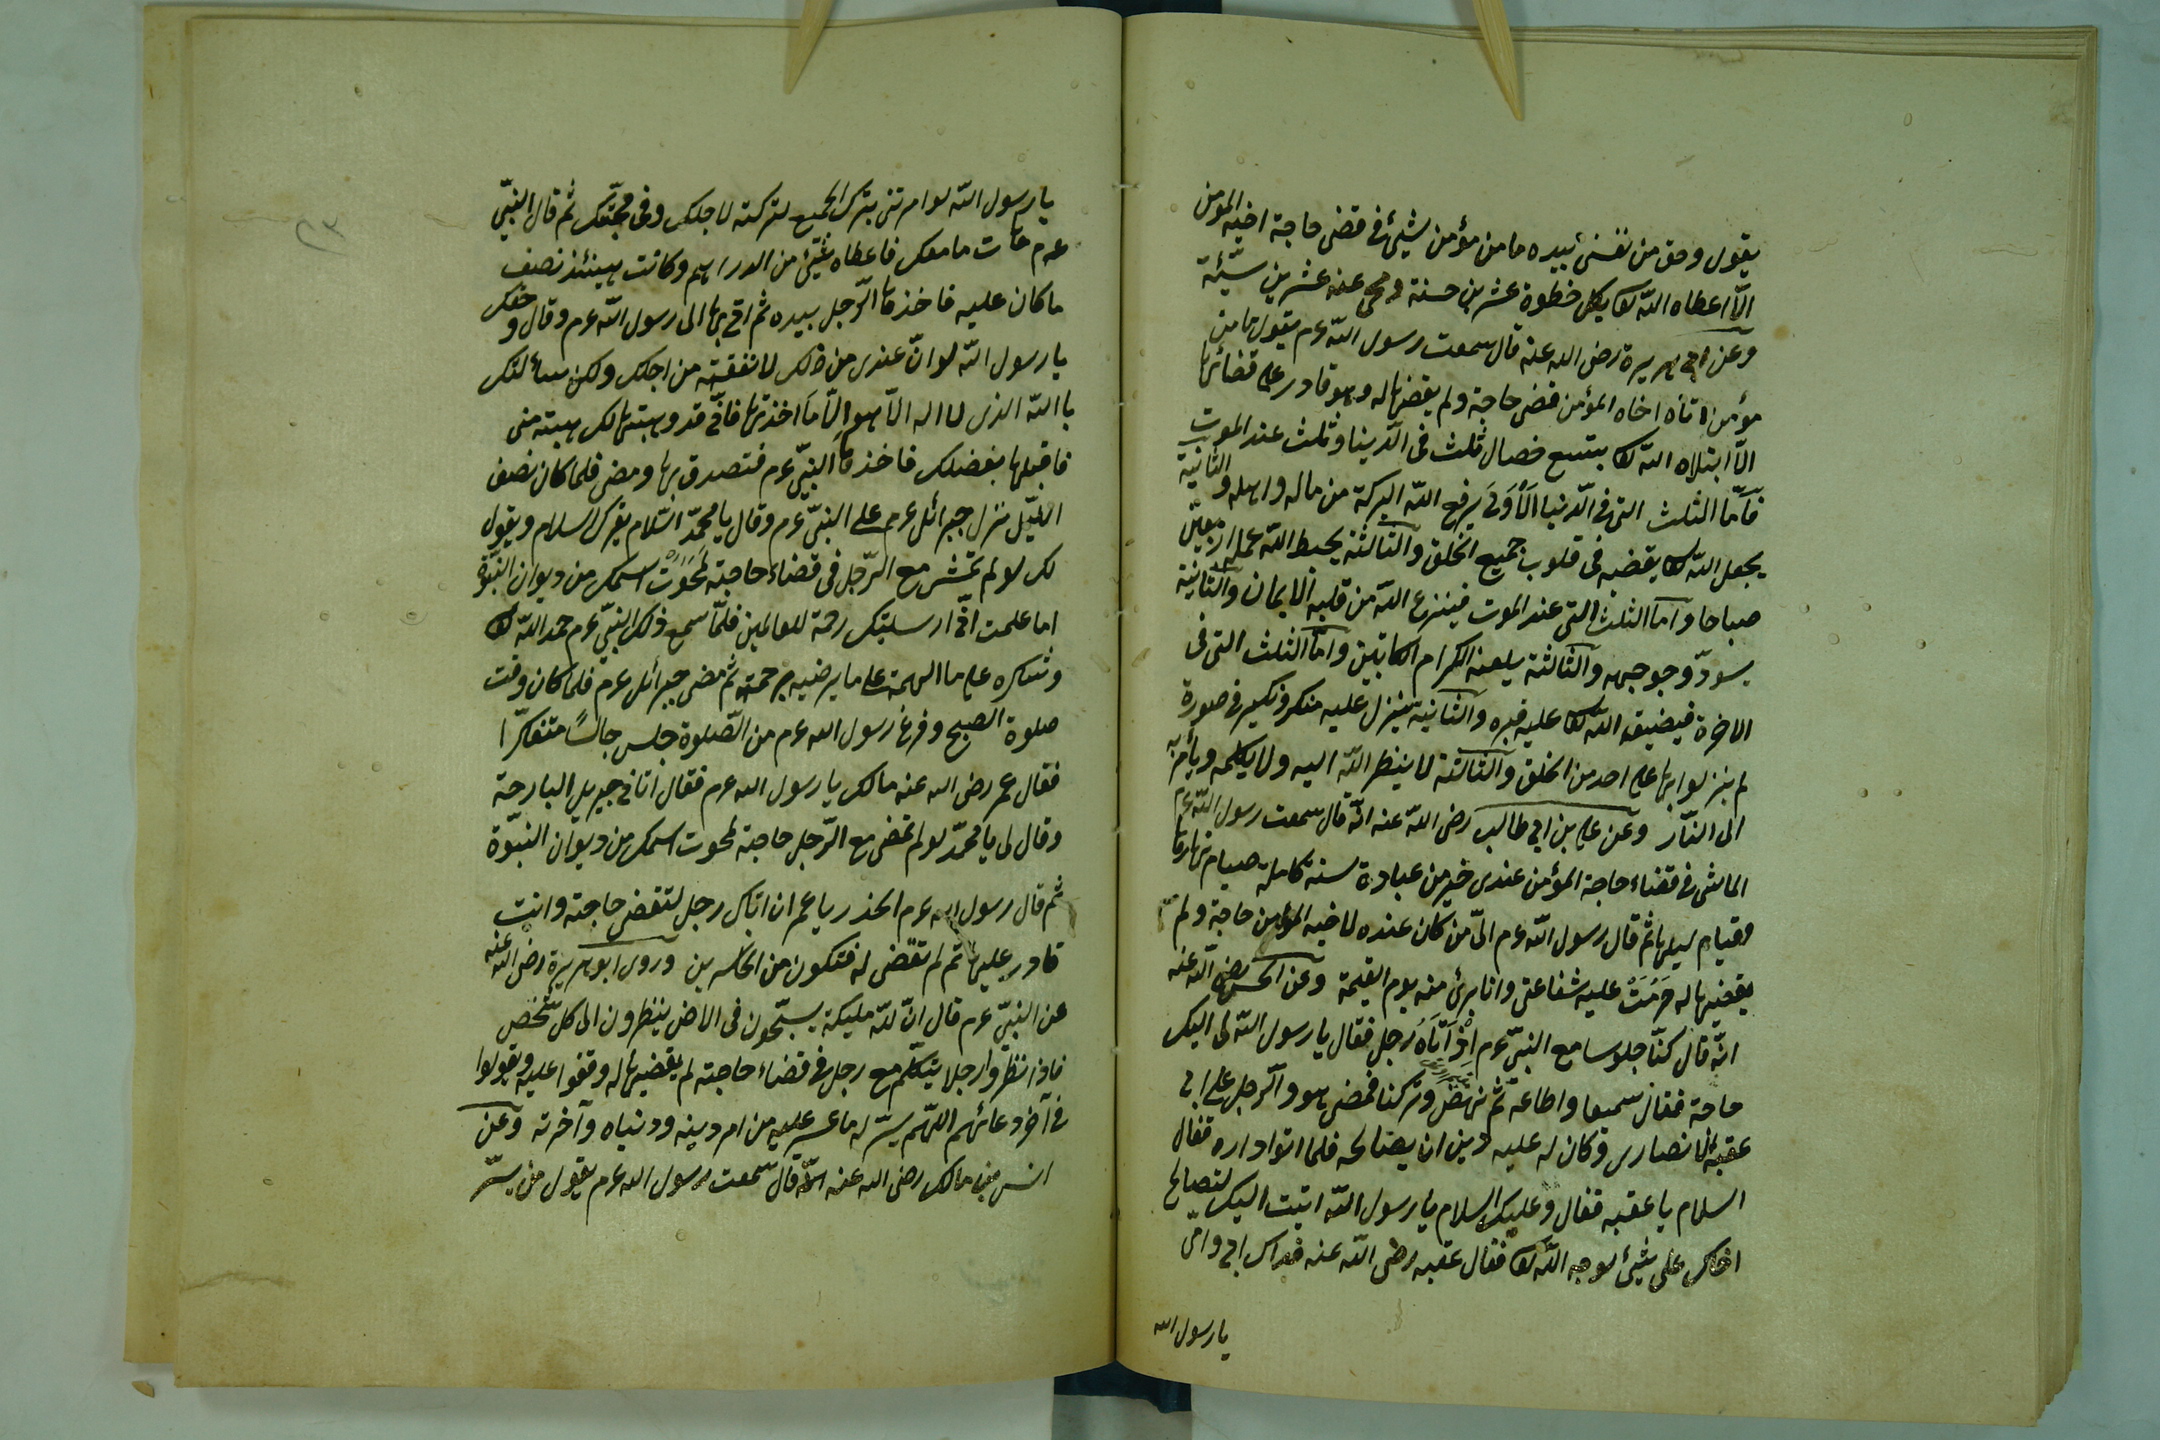 يقول وحق من نفسى بيده ما من مؤمن يشئ فى قضى حاجة اخيه المؤمن
الّا اعطاه الله تعا بكل خطوة عشرين حسنة ومحى عنه عشرين سيّئة
وعن ابى هريرة رضى الله عنه قال سمعت رسول الله عم يقول ما من
مؤمن اتاه اخاه المؤمن فضى حاجة ولم يقضها له وهو قادر على قضائها
الّا ابتلاه الله تعا بتسع خصال ثلث فى الدّينا وثلث عند الموت
فامّا الثلث التى فى الدّنيا الاوّلى يرفع الله البركة من ماله واهله والثانية
يجعل الله تعا يقضبه فى قلوب جميع الخلق والثالثة يحبط الله عمله اربعين
صباحا وامّا الثلث التى عند الموت فينزع الله من قلبه الايمان والثانية
يسودّ وجوجهه والثالثة يلعنه الكرام الكاتبين وامّا الثلث التى فى
الاخرة فيضيق الله تعا عليه قبره والثانية ينزل عليه منكر ونكير فى صورة
لم ينزلوا بها على احد من الخلق والثالثة لا ينظر الله اليه ولا يكلمه ويأمر به
الى النّار وعن على بن ابى طالب رضى الله عنه انّه قال سمعت رسول الله عم
الماشى فى قضاء حاجة المؤمن عندى خير من عبادة سنة كاملة صيام نهارها
وقيام ليلها ثم قال رسول الله عم الىّ من كان عنده لاخيه المؤمن حاجة ولم
يقضيها له حرمت عليه شفاعتى وانا برئ منه يوم القيمة وعن الحسن رضى الله عنه
انّه قال كنّا جلوسا مع النبىّ عم اذ اتاه رجل فقال يا رسول الله لى اليك
حاجة فقال سميعا واطاعة ثم نهض وتركنا فمضى هو والرّجل على ابى
عقبة الانصارى وكان له عليه دين ان يصالحه فلما اتوا داره فقال
السلام يا عقبه فقال وعليك السلام يا رسول الله اتيت اليك لتصالح
اخاك على شئ لوجه الله تعا فقال عقبه رضى الله عنه فداك ابى وامّى
يا رسول الله
يا رسول الله لو امرتنى بترك الجميع لتركته لاجلك وفى محبّتك ثم قال النبىّ
عم هات ما معك فاعطاه شيئ من الدراهم وكانت هينئذ نصف
ما كان عليه فاخذها الرّجل بيده ثم اتى بها الى رسول الله عم وقال وحقك
يا رسول الله لو انّ عندى من ذلك لانفقته من اجلك ولكن سئالتك
با الله الذى لا اله الّا هو الّا ما اخذتها فانّى قد وهبتها لك هبته منى
فاقبلها بفضلك فاخذها النبىّ عم فتصدق بها ومضى فلما كان نصف
الليّل نزل جبرائل عم على النبىّ عم وقال يا محمّد السّلام يقرك السلام ويقول
لك لو لم تمش مع الرّجل فى قضاء حاجته لمحوت اسمك من ديوان النبّوة
اما علمت انّى ارسلتك رحمة للعالمين فلمّا سمع ذلك النبىّ عم حمد الله تعا
وشكره على ما الهمة على ما يرضيه برحمته ثم مضى جبرائل عم فلما كان وقت
صلوة الصبح وفرغ رسول الله عم من الصّلوة جلس جالسًا متفكّرا
فقال عمر رضى الله عنه مالك يا رسول الله عم فقال اتانى جبريل البارحة
وقال لى يا محمّد لو لم تمضى مع الرّجل حاجته لمحوت اسمك من ديوان النبّوة
ثم قال رسول الله عم الحذر يا عمر ان اتاك رجل لتقضى حاجته وانت
قادر عليها ثم لم تقضى له فتكون من الخاسرين وروى ابو هريرة رضى الله عنه
عن النبىّ عم قال انّ لله مليكة يسبّحون فى الاض ينظرون الى كل شخص
فاذا نظروا رجلا يتكلّم مع رجل فى قضاء حاجته لم يقضيها له وقفوا عليه ويقولوا
فى آخر دعائهم اللهّم يسّر له ما عسر عليه من امر دينه ودنياه وآخرته وعن
انس بن مالك رضى الله عنه انّه قال سمعت رسول الله عم يقول من يسّر